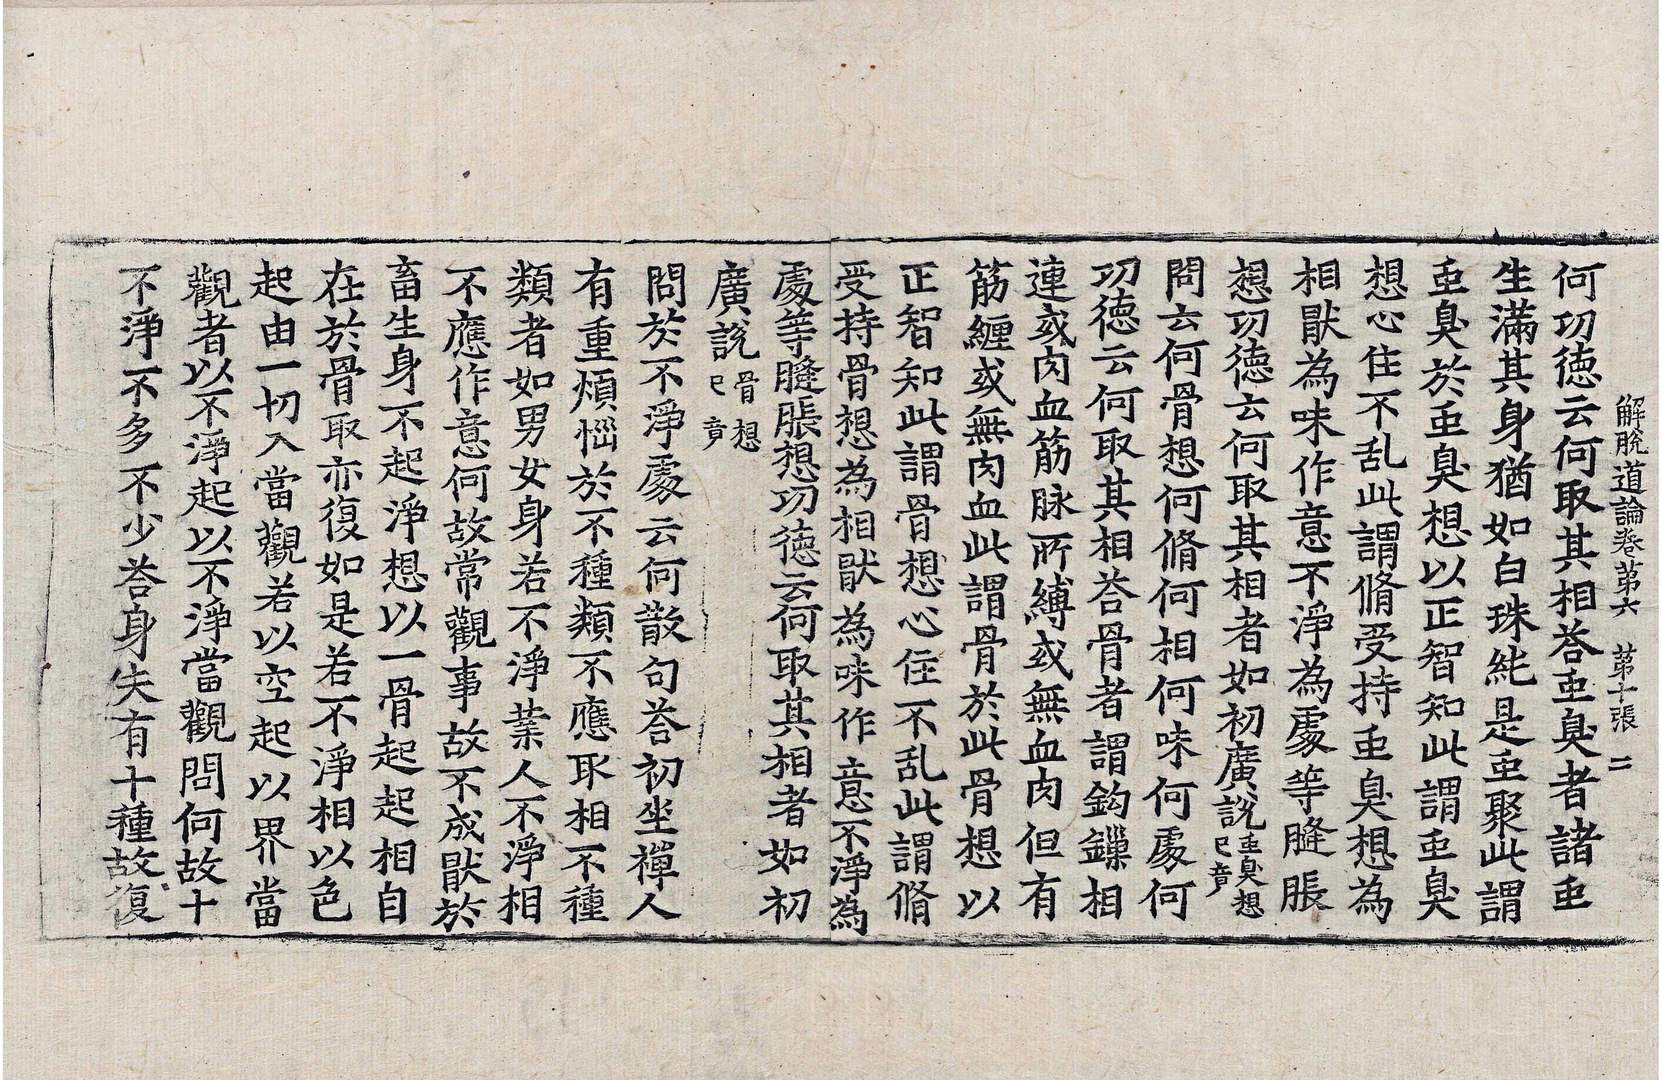 解脫道論卷第六　第十張　二
何功德云何取其相荅䖝臭者諸䖝
生滿其身猶如白珠純是䖝聚此謂
䖝臭於䖝臭想以正智知此謂䖝臭
想心住不乱此謂脩受持䖝臭想為
相猒為味作意不淨為處等膖脹
想功德云何取其相者如初廣說䖝臭想已竟
問云何骨想何脩何相何味何處何
功德云何取其相荅骨者謂鈎鏁相
連或肉血筋脉所縛或無血肉但有
筋纏或無肉血此謂骨於此骨想以
正智知此謂骨想心住不乱此謂脩
受持骨想為相猒為味作意不淨為
處等膖脹想功德云何取其相者如初
廣說骨想已竟
問於不淨處云何散句荅初坐禪人
有重煩惱於不種類不應取相不種
類者如男女身若不淨業人不淨相
不應作意何故常觀事故不成猒於
畜生身不起淨想以一骨起起相自
在於骨取亦復如是若不淨相以色
起由一切入當觀若以空起以界當
觀者以不淨起以不淨當觀問何故十
不淨不多不少荅身失有十種故復